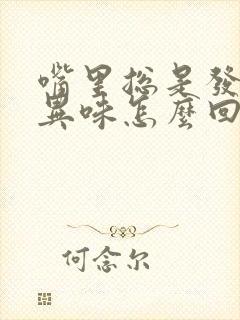 嘴里总是發
異味怎麼回
何念尔